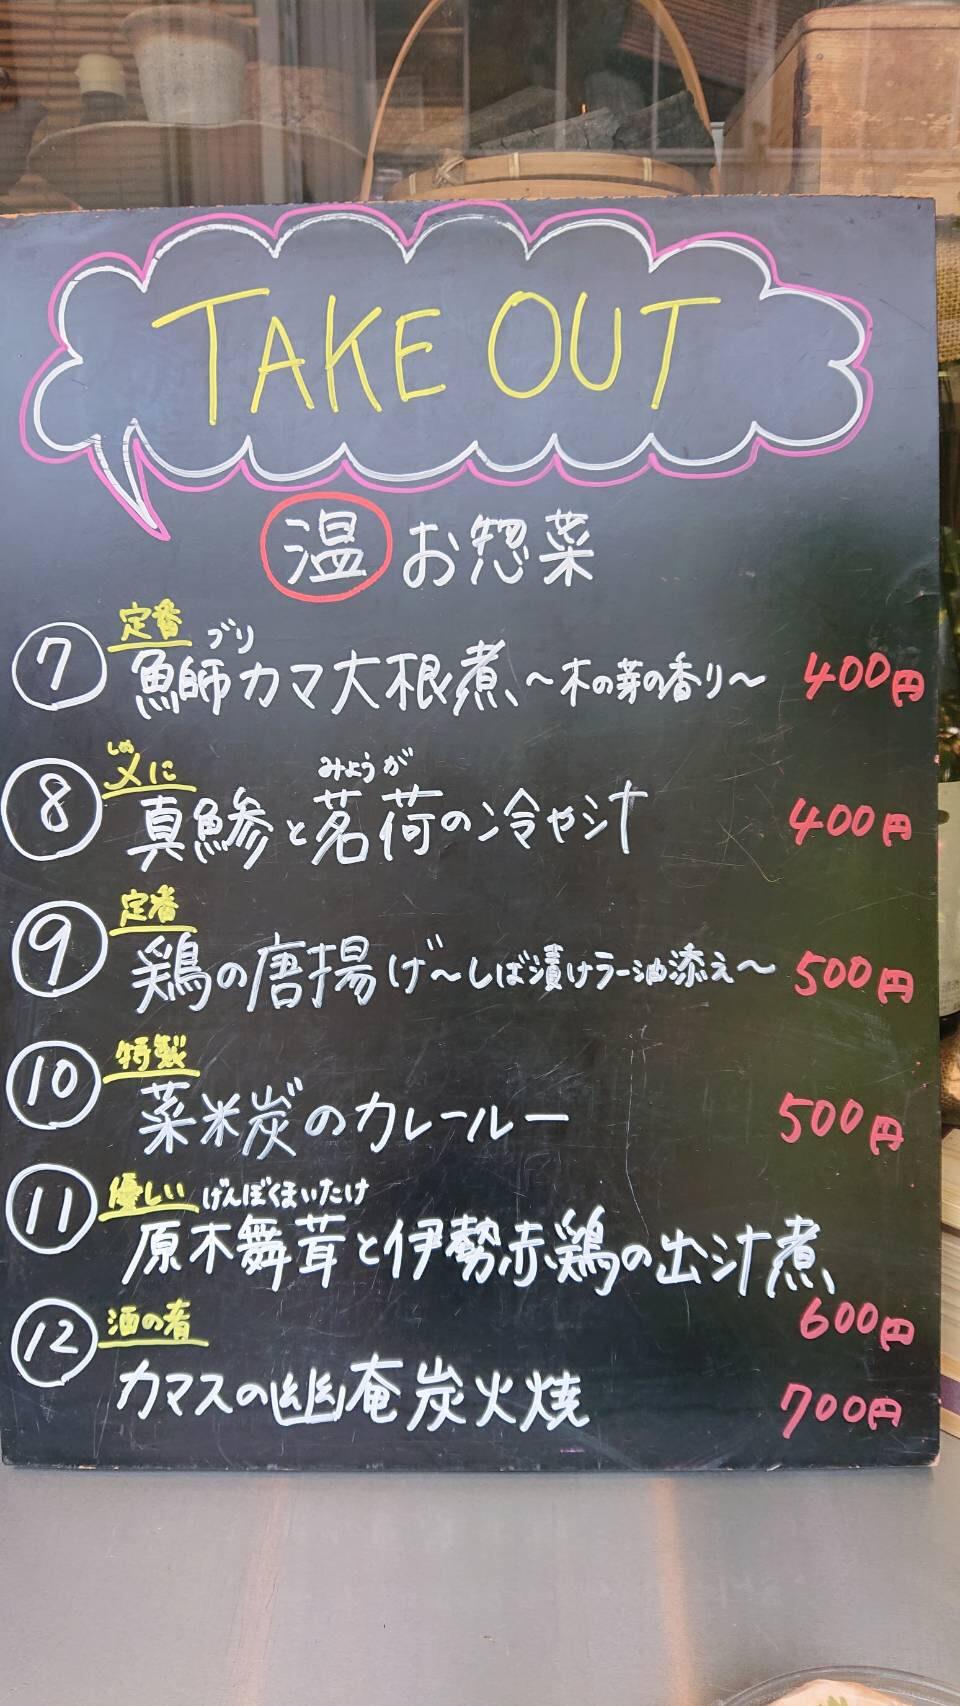 TAKE OUT
温 お惣菜
定番 ブリ
⑦ 鰤カマ大根煮 〜木の芽の香り〜 400円
しめ
〆に みょうが
⑧ 真鯵と茗荷の冷や汁 400円
定番
⑨ 鶏の唐揚げ〜しば漬けラー油添え〜 500円
特製
⑩ 菜米炭のカレールー 500円
優しい げんぼくまいたけ
⑪ 原木舞茸と伊勢赤鶏の出汁煮
600円
酒の肴
⑫ カマスの幽庵炭火焼 700円